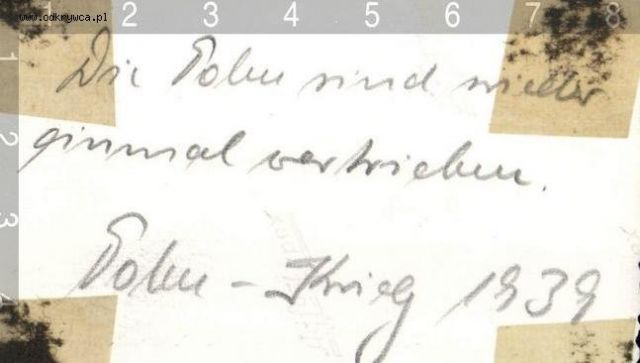 www.odkrywca.pl
1 2 3 4 5 6 7 8
1
2
3
4
Die Polen sind wieder
einmal vertrieben.
Polen - Krieg 1939